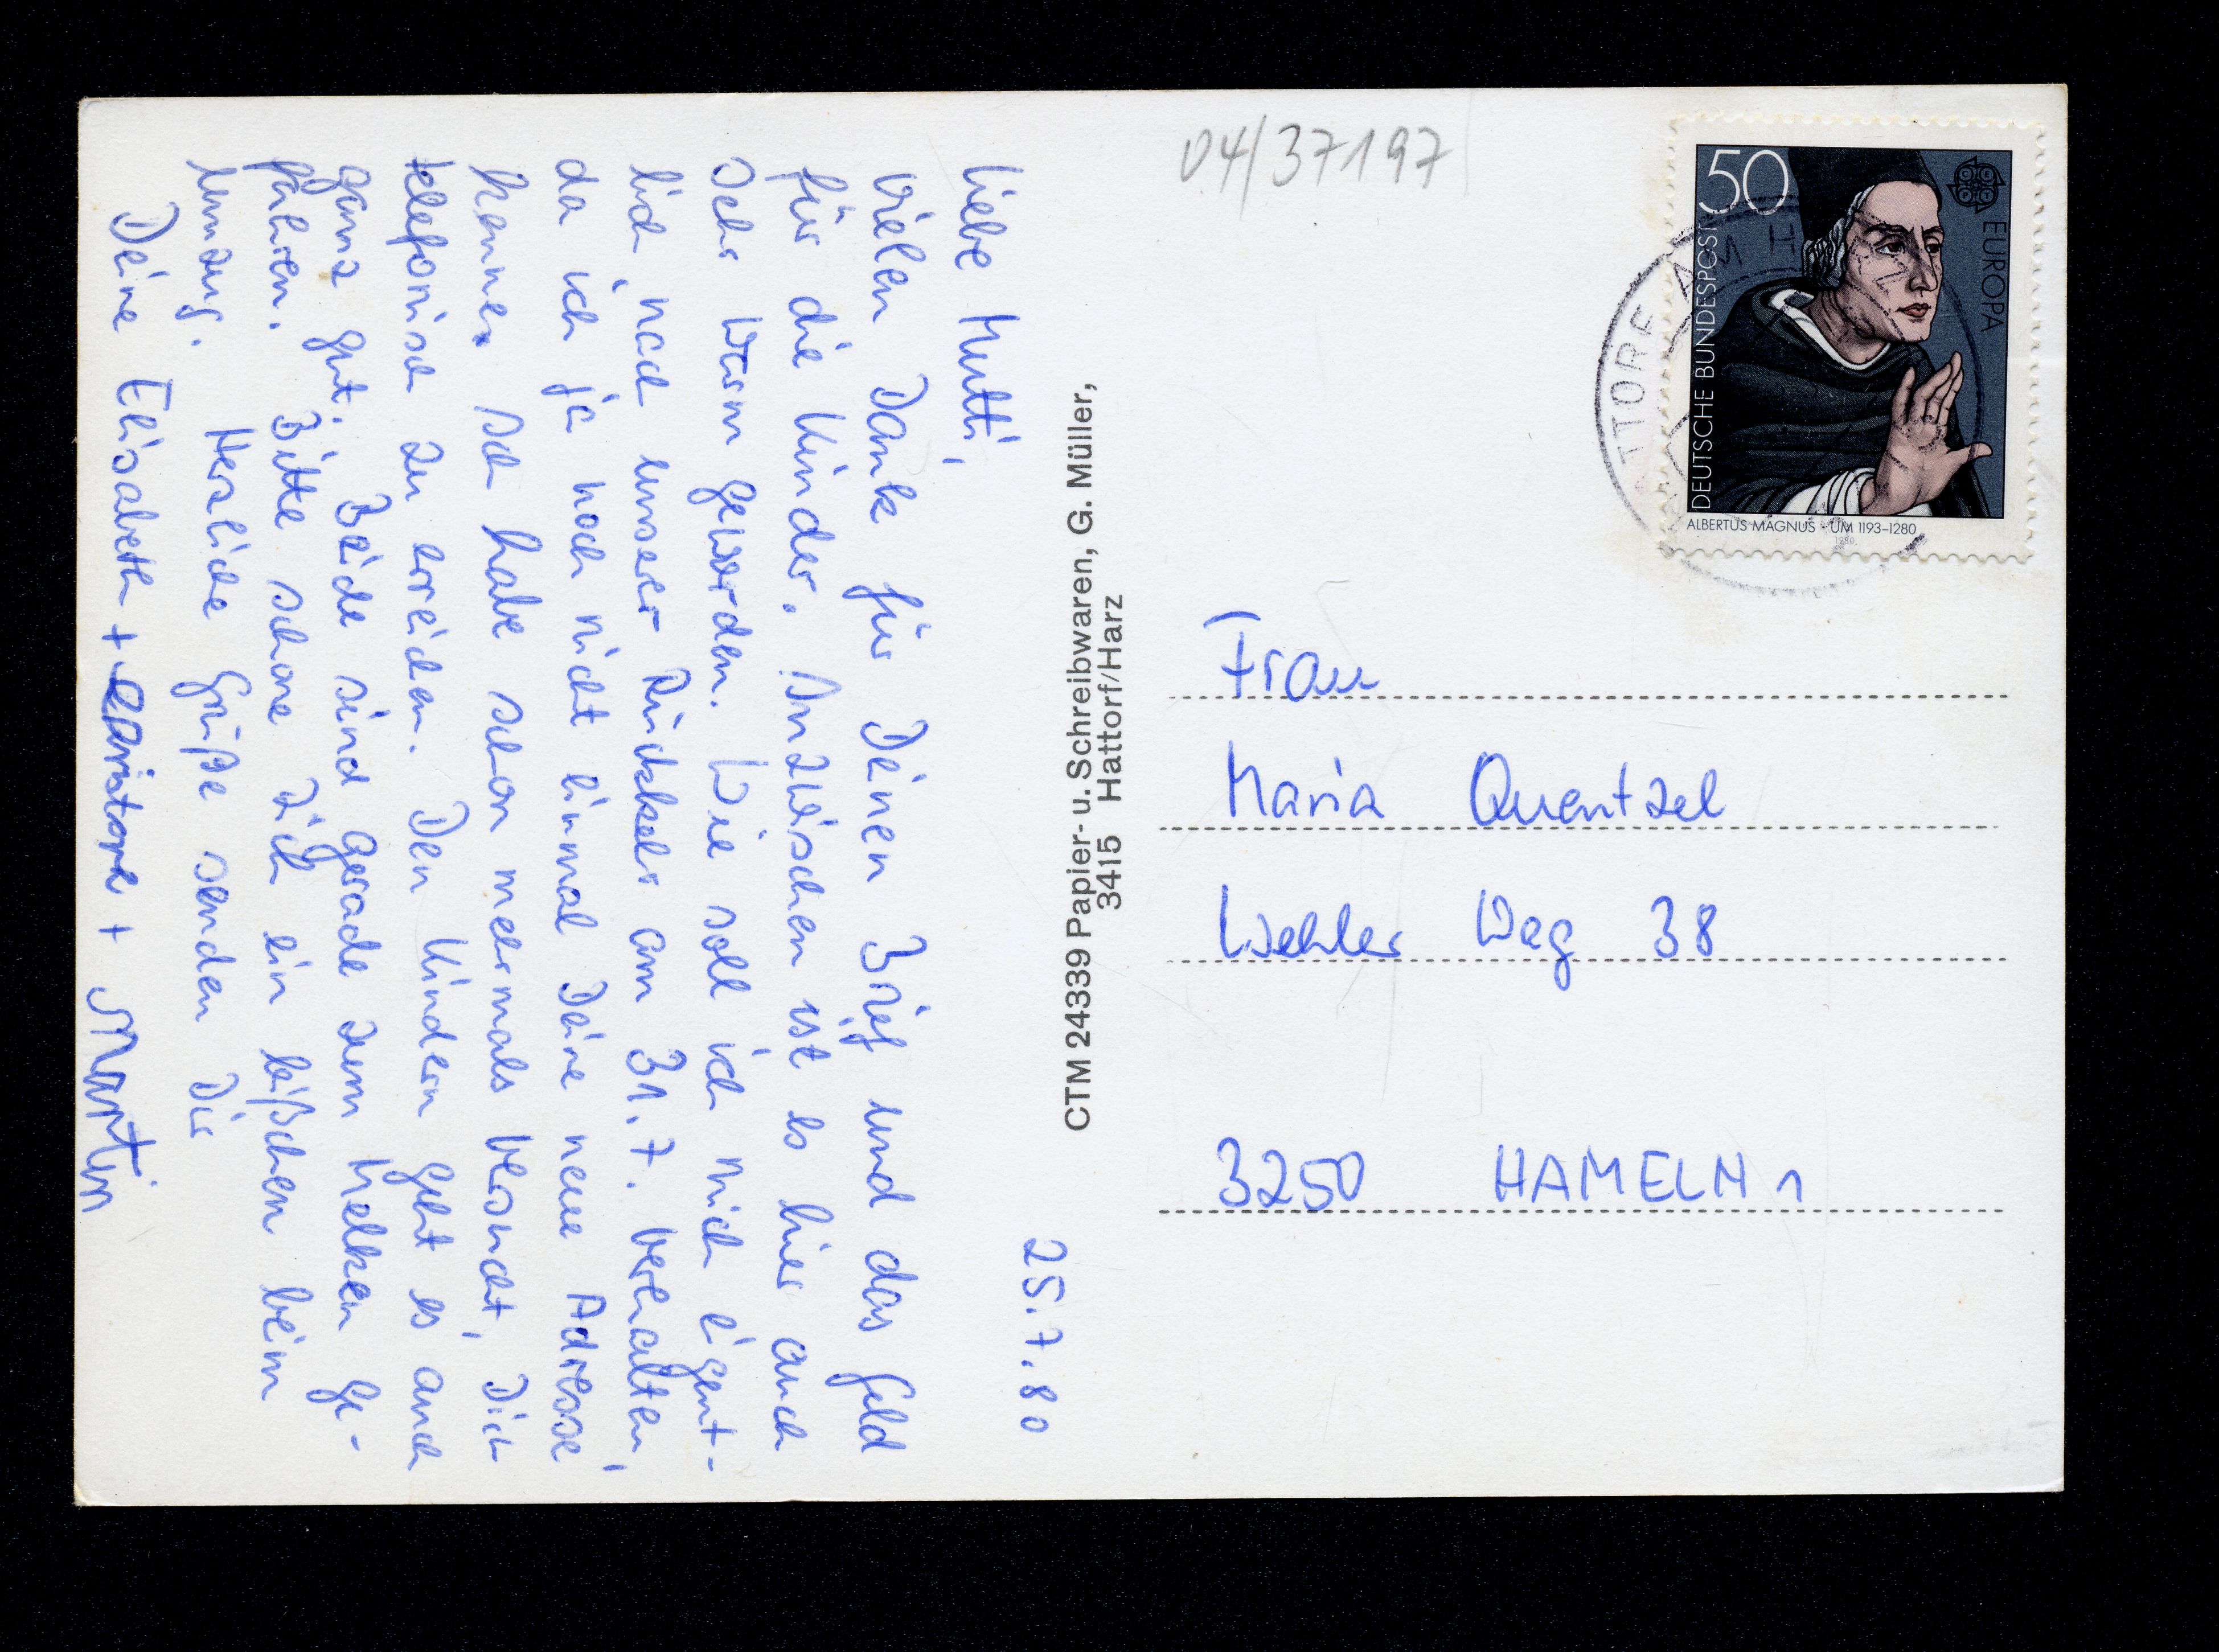 25.7.80
Liebe Mutti,
vielen Dank für Deinen Brief und das Geld
für die Kinder. Inzwischen ist es hier auch
sehr warm geworden. Wie soll ich mich eigent-
lich, nach unserer Rückkehr am 31.7. verhalten,
da ich ja noch nicht einmal Deine neue Adresse
kenne. Ich habe schon mehrmals versucht, Dich
telefonisch zu erreichen. Den Kindern geht es auch
ganz gut. Beide sind gerade zum Melken ge-
fahren. Bitte schone Dich ein bißchen beim
Umzug. Herzliche Grüße senden Dir
Deine Elisabeth + + Martin
CTM 24339 Papier- u. Schreibwaren, G. Müller,
3415 Hattorf/Harz
04/37197
50
EUROPA
DEUTSCHE BUNDESPOST
ALBERTUS MAGNUS · UM 1193–1280
1980
TTORF AM H
Frau
Maria Quentzel
Wehler Weg 38
3250 HAMELN 1